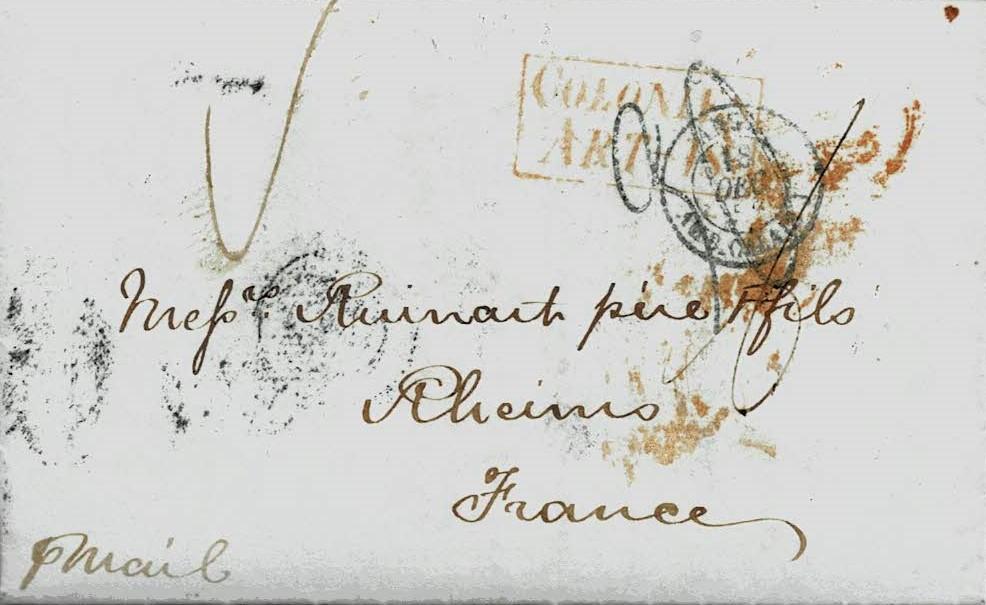 COLONI
ART
15
DEC
Messrs. Ruinart père & fils
Rheims
France
p Mail